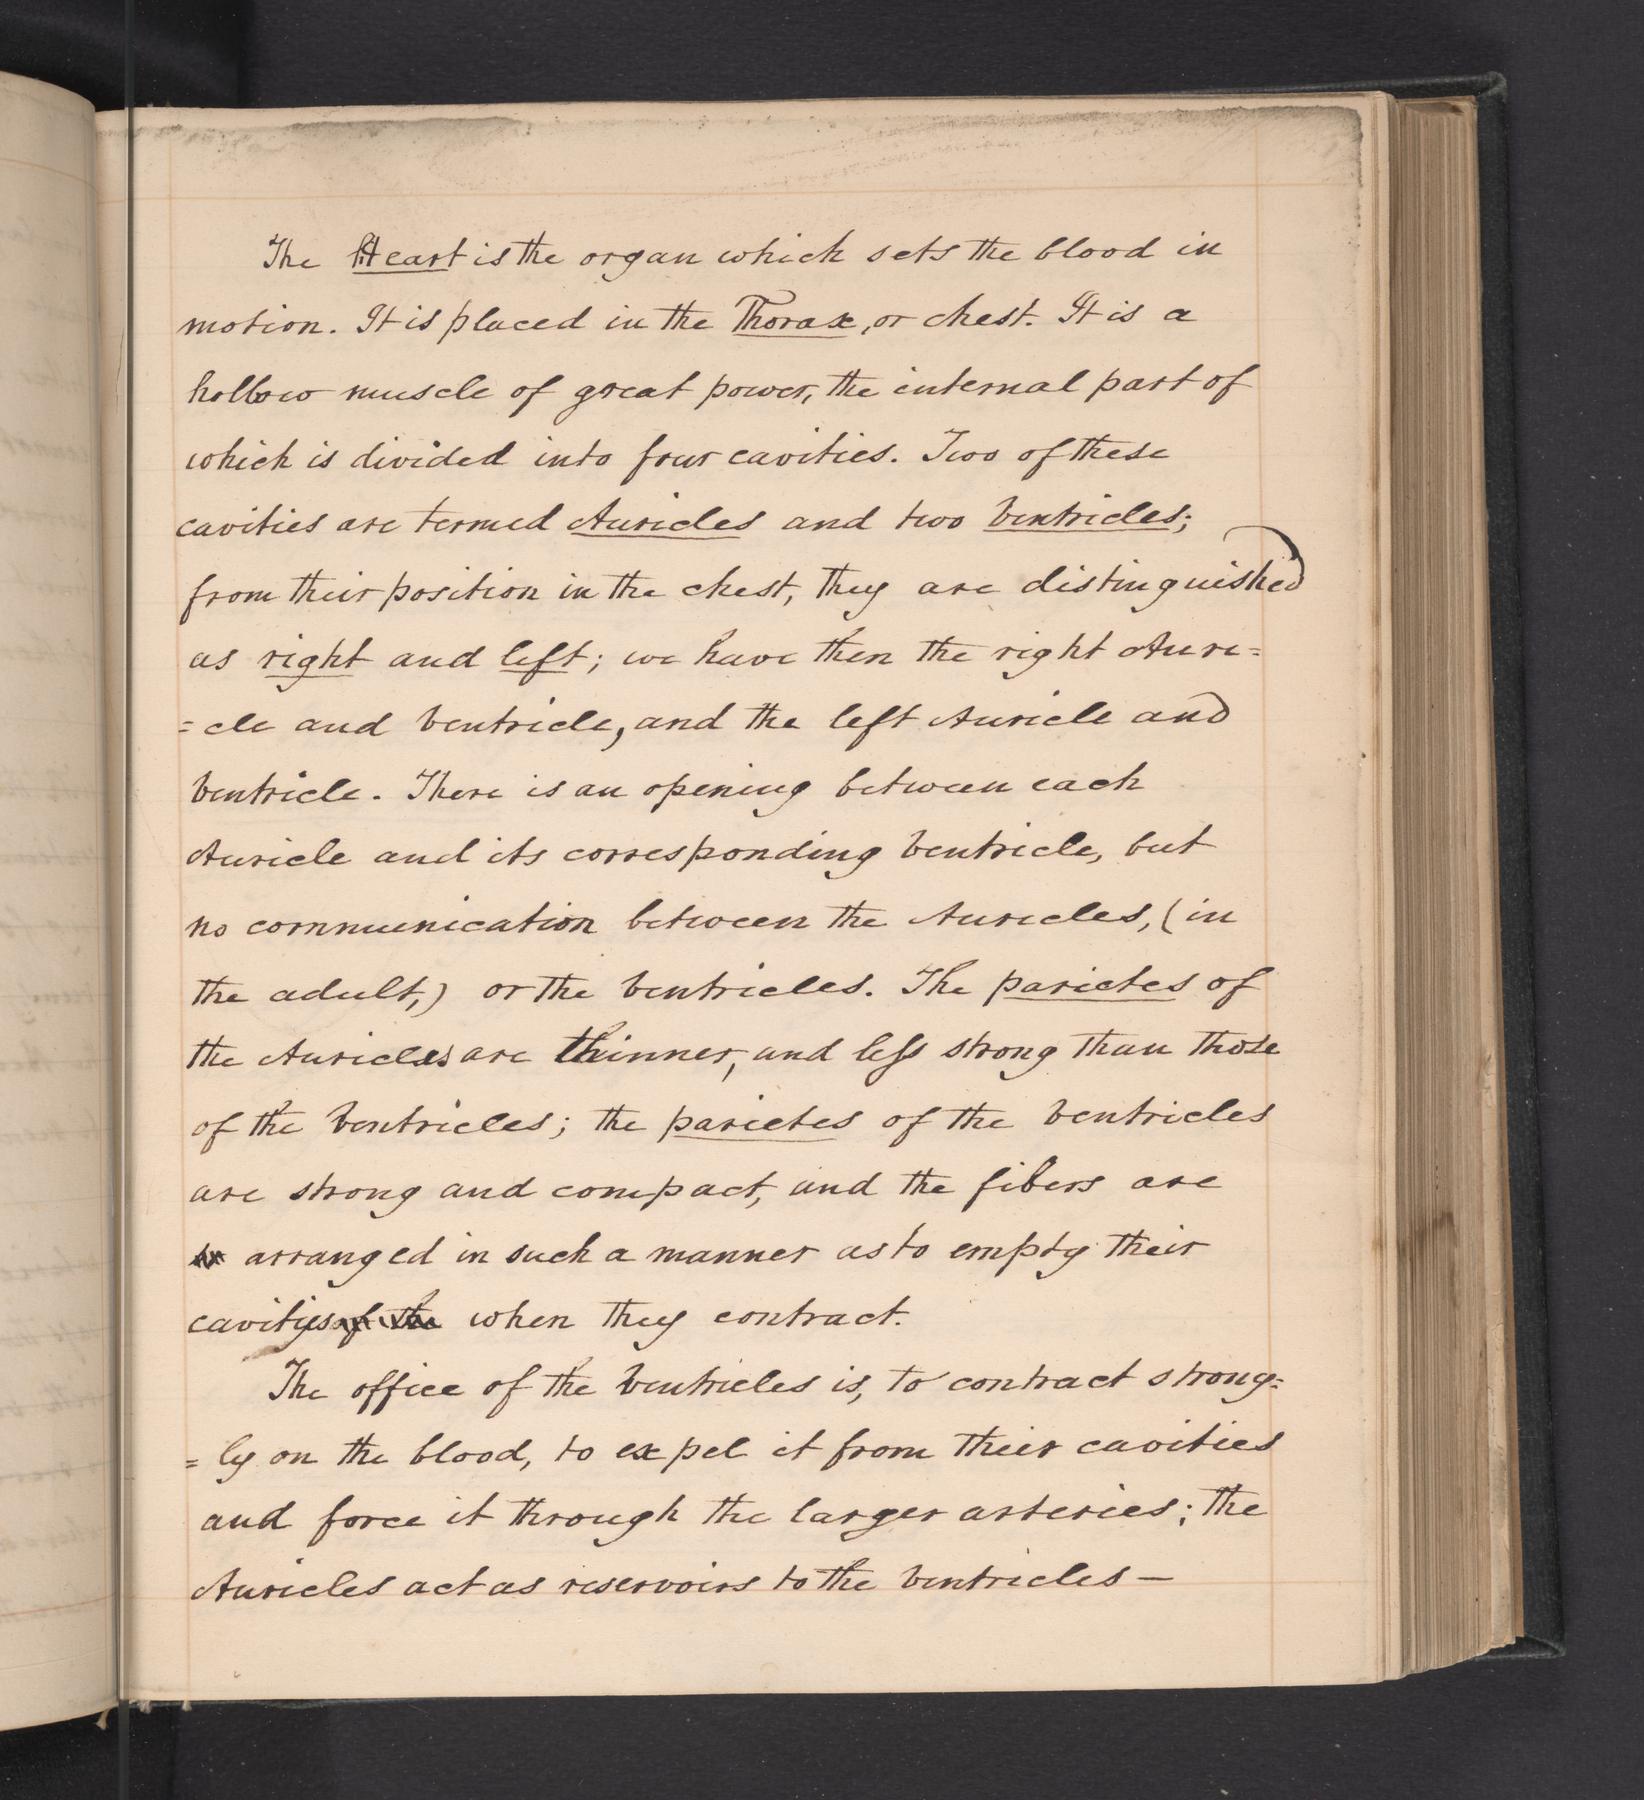 The Heart is the organ which sets the blood in
motion. It is placed in the Thorax, or chest. It is a
hollow muscle of great power, the internal part of
which is divided into four cavities. Two of these
cavities are termed Auricles and two Ventricles;
from their position in the chest, they are distinguished
as right and left; we have then the right Auri=
=cle and Ventricle, and the left Auricle and
Ventricle. There is an opening between each
Auricle and its corresponding Ventricle, but
no communication between the Auricles, (in
the adult,) or the Ventricles. The parietes of
the Auricles are thinner, and less strong than those
of the Ventricles; the parietes of the Ventricles
are strong and compact, and the fibers are
arranged in such a manner as to empty their
cavitys of the when they contract.
The office of the Ventricles is, to contract strong=
=ly on the blood, to expel it from their cavities
and force it through the larger arteries; the
Auricles act as reservoirs to the Ventricles —